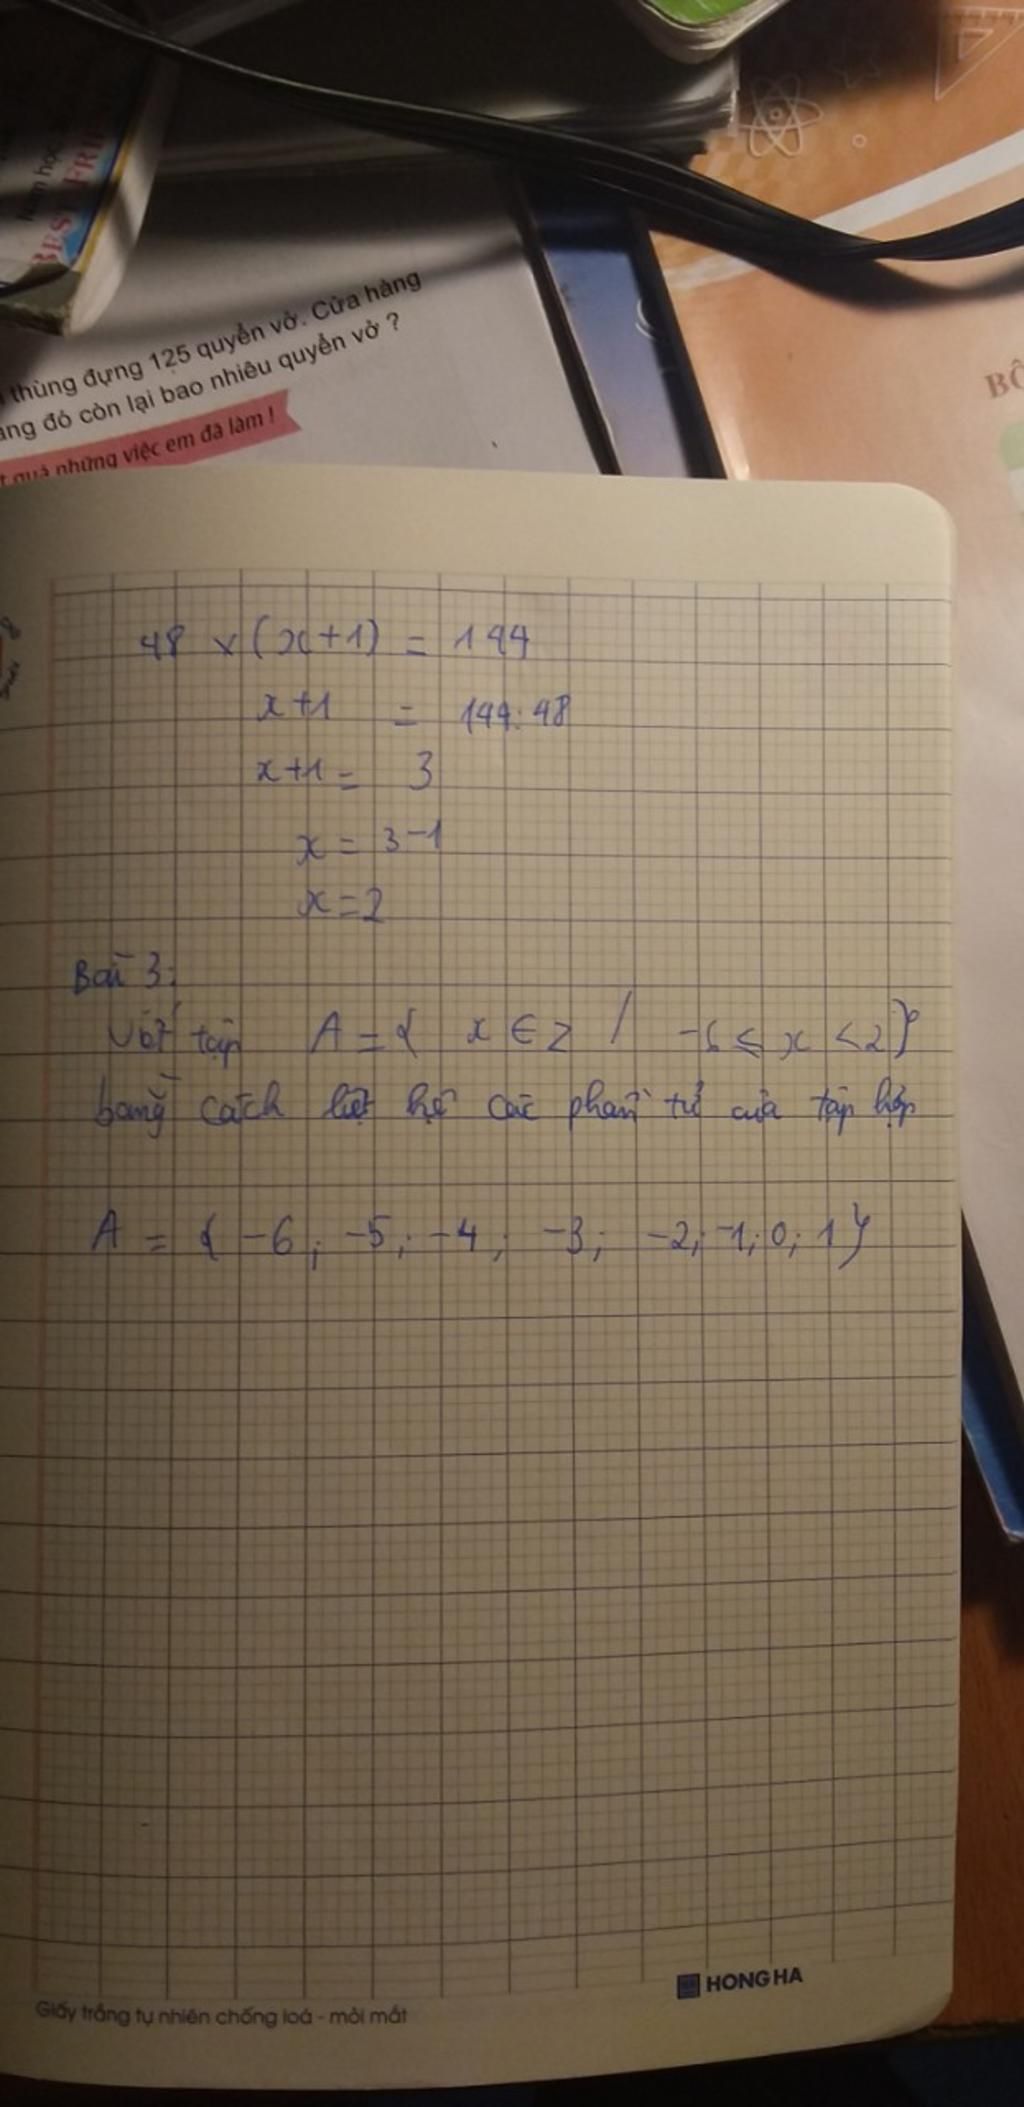 Năm học
BEST FRI
thùng đựng 125 quyển vở. Cửa hàng
àng đó còn lại bao nhiêu quyển vở ?
quả những việc em đã làm !
BỘ
48 x (x+1) = 144
x+1 = 144:48
x+1 = 3
x = 3-1
x=2
Bài 3:
Viết tập A = { x ∈ Z / -6 ≤ x < 2}
bằng cách liệt kê các phần tử của tập hợp
A = { -6; -5; -4; -3; -2; -1; 0; 1}
HONG HA
Giấy trắng tự nhiên chống loá - mỏi mắt